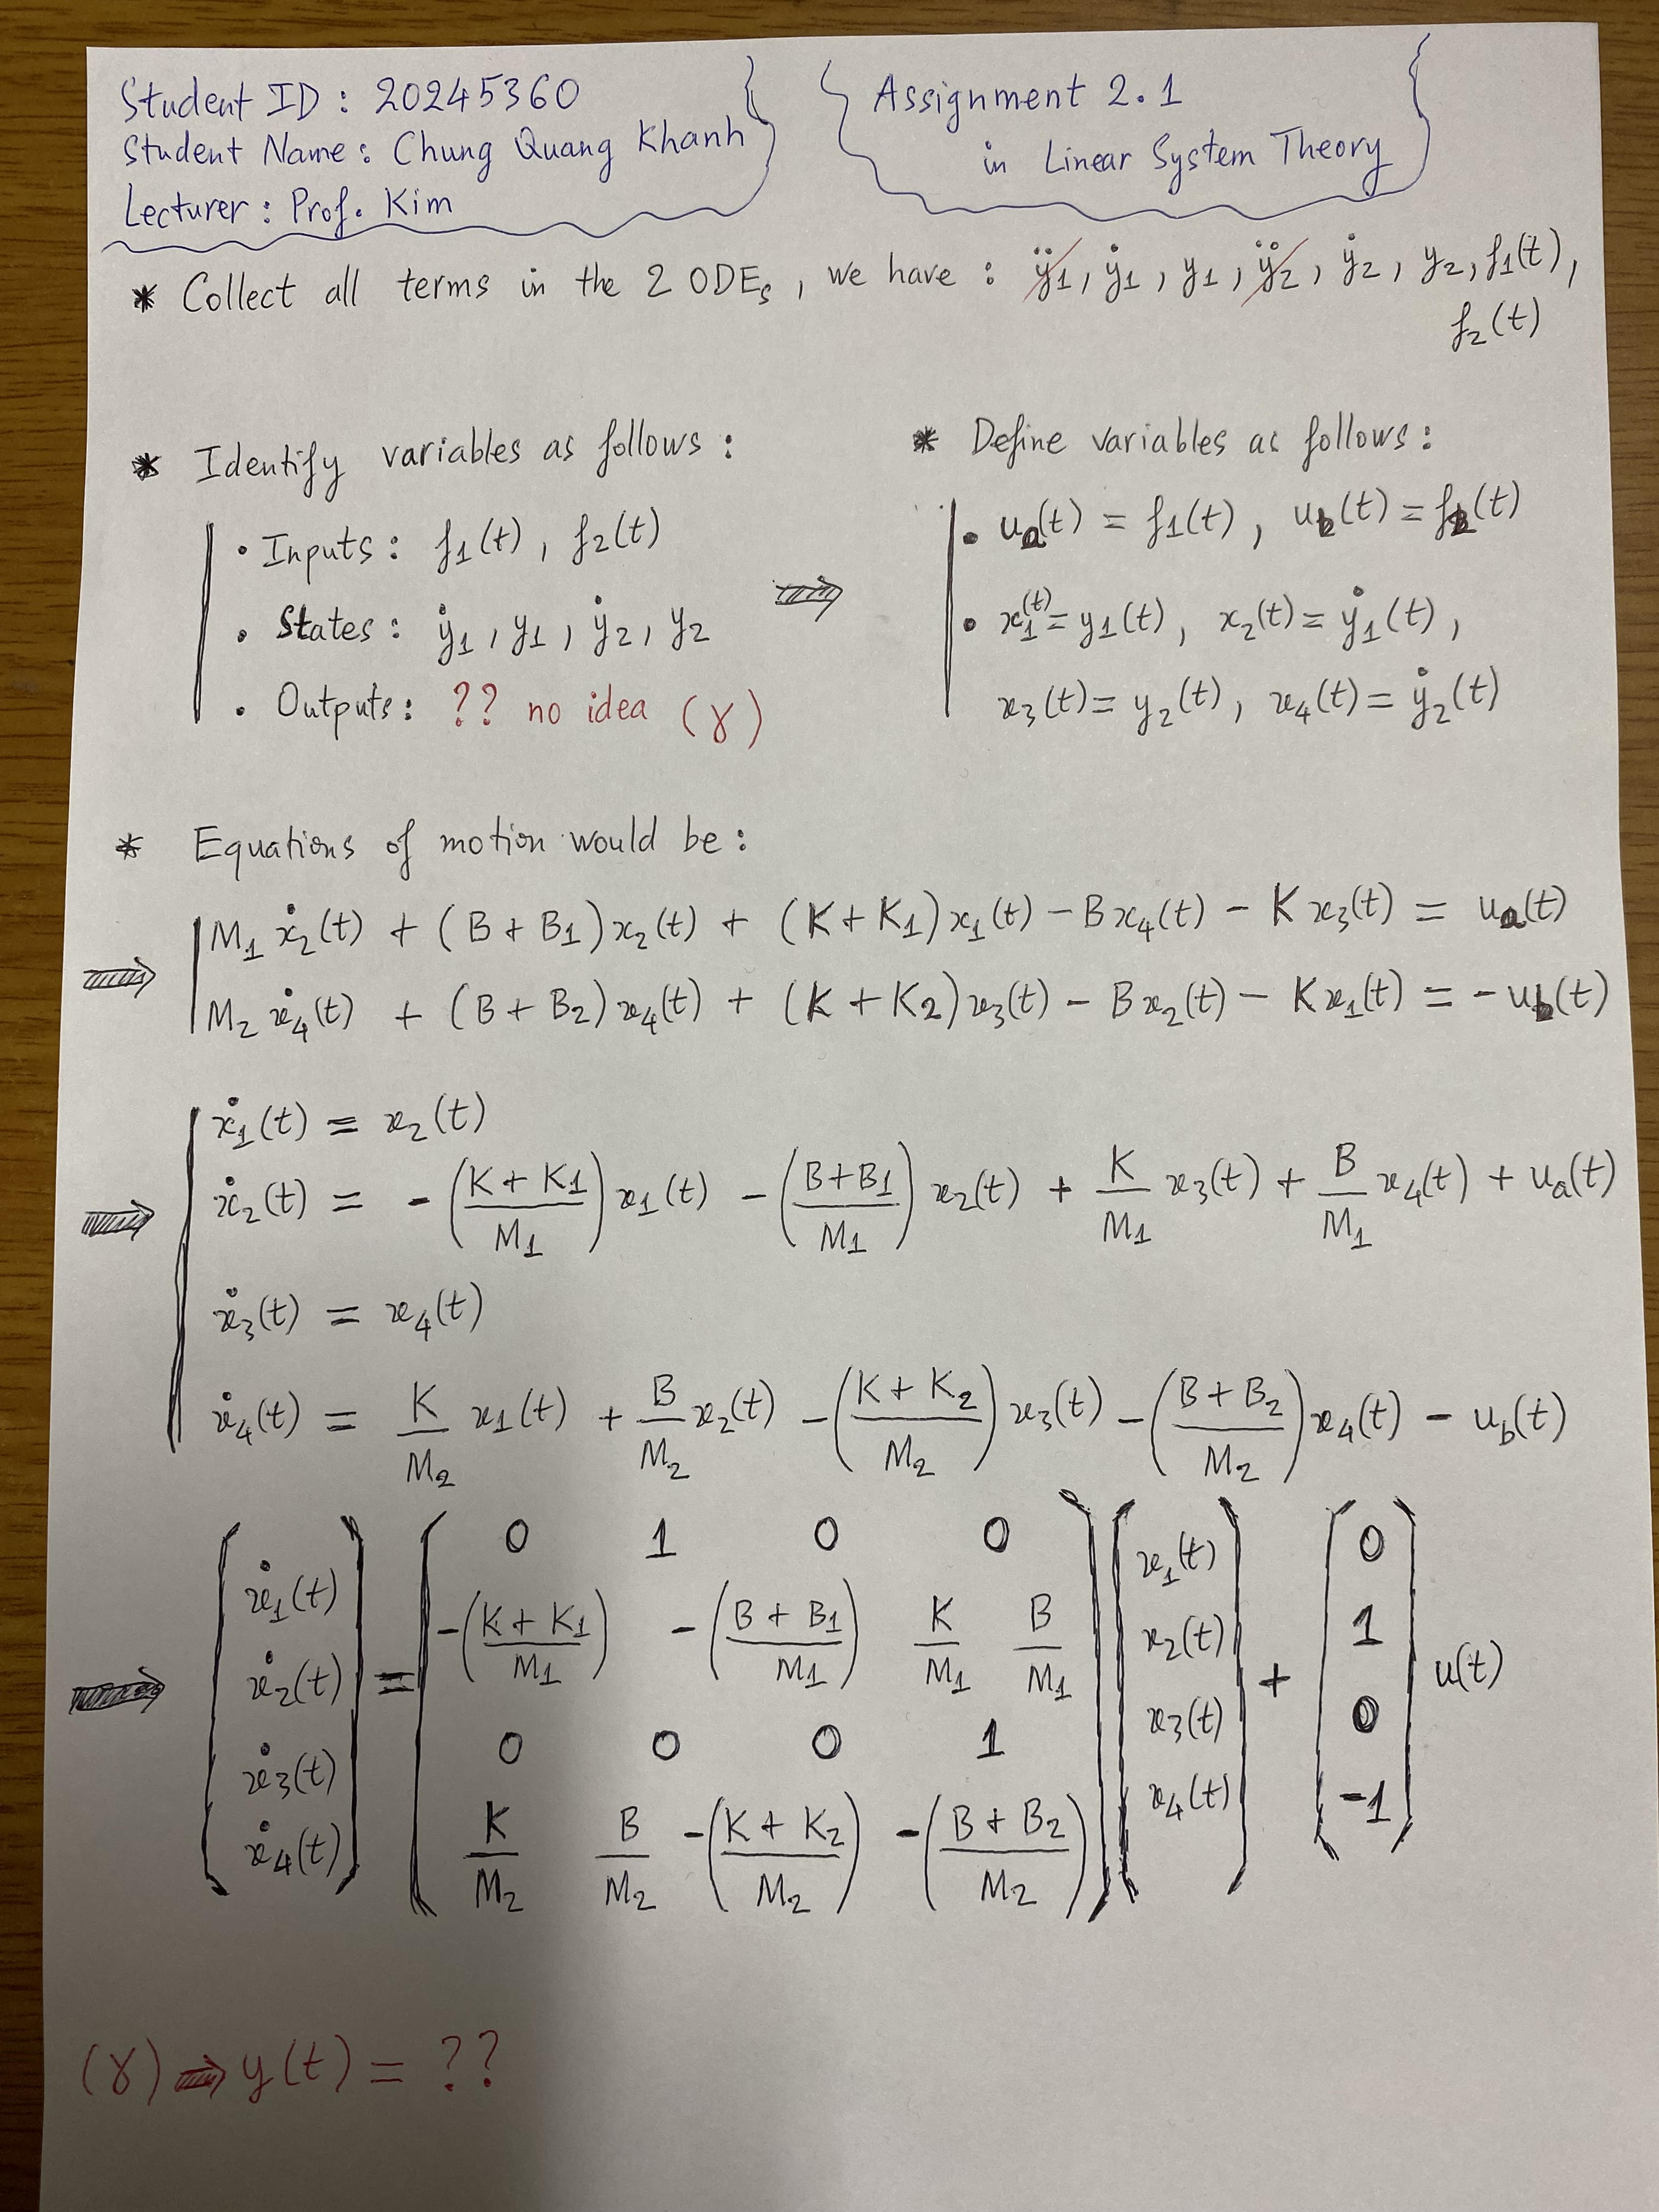 Student ID : 20245360
Student Name : Chung Quang Khanh
Lecturer : Prof. Kim
Assignment 2.1
in Linear System Theory
* Collect all terms in the 2 ODEs, we have : ÿ1, ẏ1, y1, ÿ2, ẏ2, y2, f1(t),
f2(t)
* Identify variables as follows :
• Inputs : f1(t), f2(t)
• States : ẏ1, y1, ẏ2, y2
• Outputs : ?? no idea (γ)
⇒
* Define variables as follows :
• ua(t) = f1(t), ub(t) = f2(t)
• x1(t) = y1(t), x2(t) = ẏ1(t),
x3(t) = y2(t), x4(t) = ẏ2(t)
* Equations of motion would be :
⇒ M1 ẋ2(t) + (B + B1) x2(t) + (K + K1) x1(t) - B x4(t) - K x3(t) = ua(t)
M2 ẋ4(t) + (B + B2) x4(t) + (K + K2) x3(t) - B x2(t) - K x1(t) = - ub(t)
ẋ1(t) = x2(t)
⇒ ẋ2(t) = - ((K + K1)/M1) x1(t) - ((B + B1)/M1) x2(t) + K/M1 x3(t) + B/M1 x4(t) + ua(t)
ẋ3(t) = x4(t)
ẋ4(t) = K/M2 x1(t) + B/M2 x2(t) - ((K + K2)/M2) x3(t) - ((B + B2)/M2) x4(t) - ub(t)
ẋ1(t) 0 1 0 0 x1(t) 0
⇒ ẋ2(t) = -((K + K1)/M1) -((B + B1)/M1) K/M1 B/M1 x2(t) + 1 u(t)
ẋ3(t) 0 0 0 1 x3(t) 0
ẋ4(t) K/M2 B/M2 -((K + K2)/M2) -((B + B2)/M2) x4(t) -1
(γ) ⇒ y(t) = ??